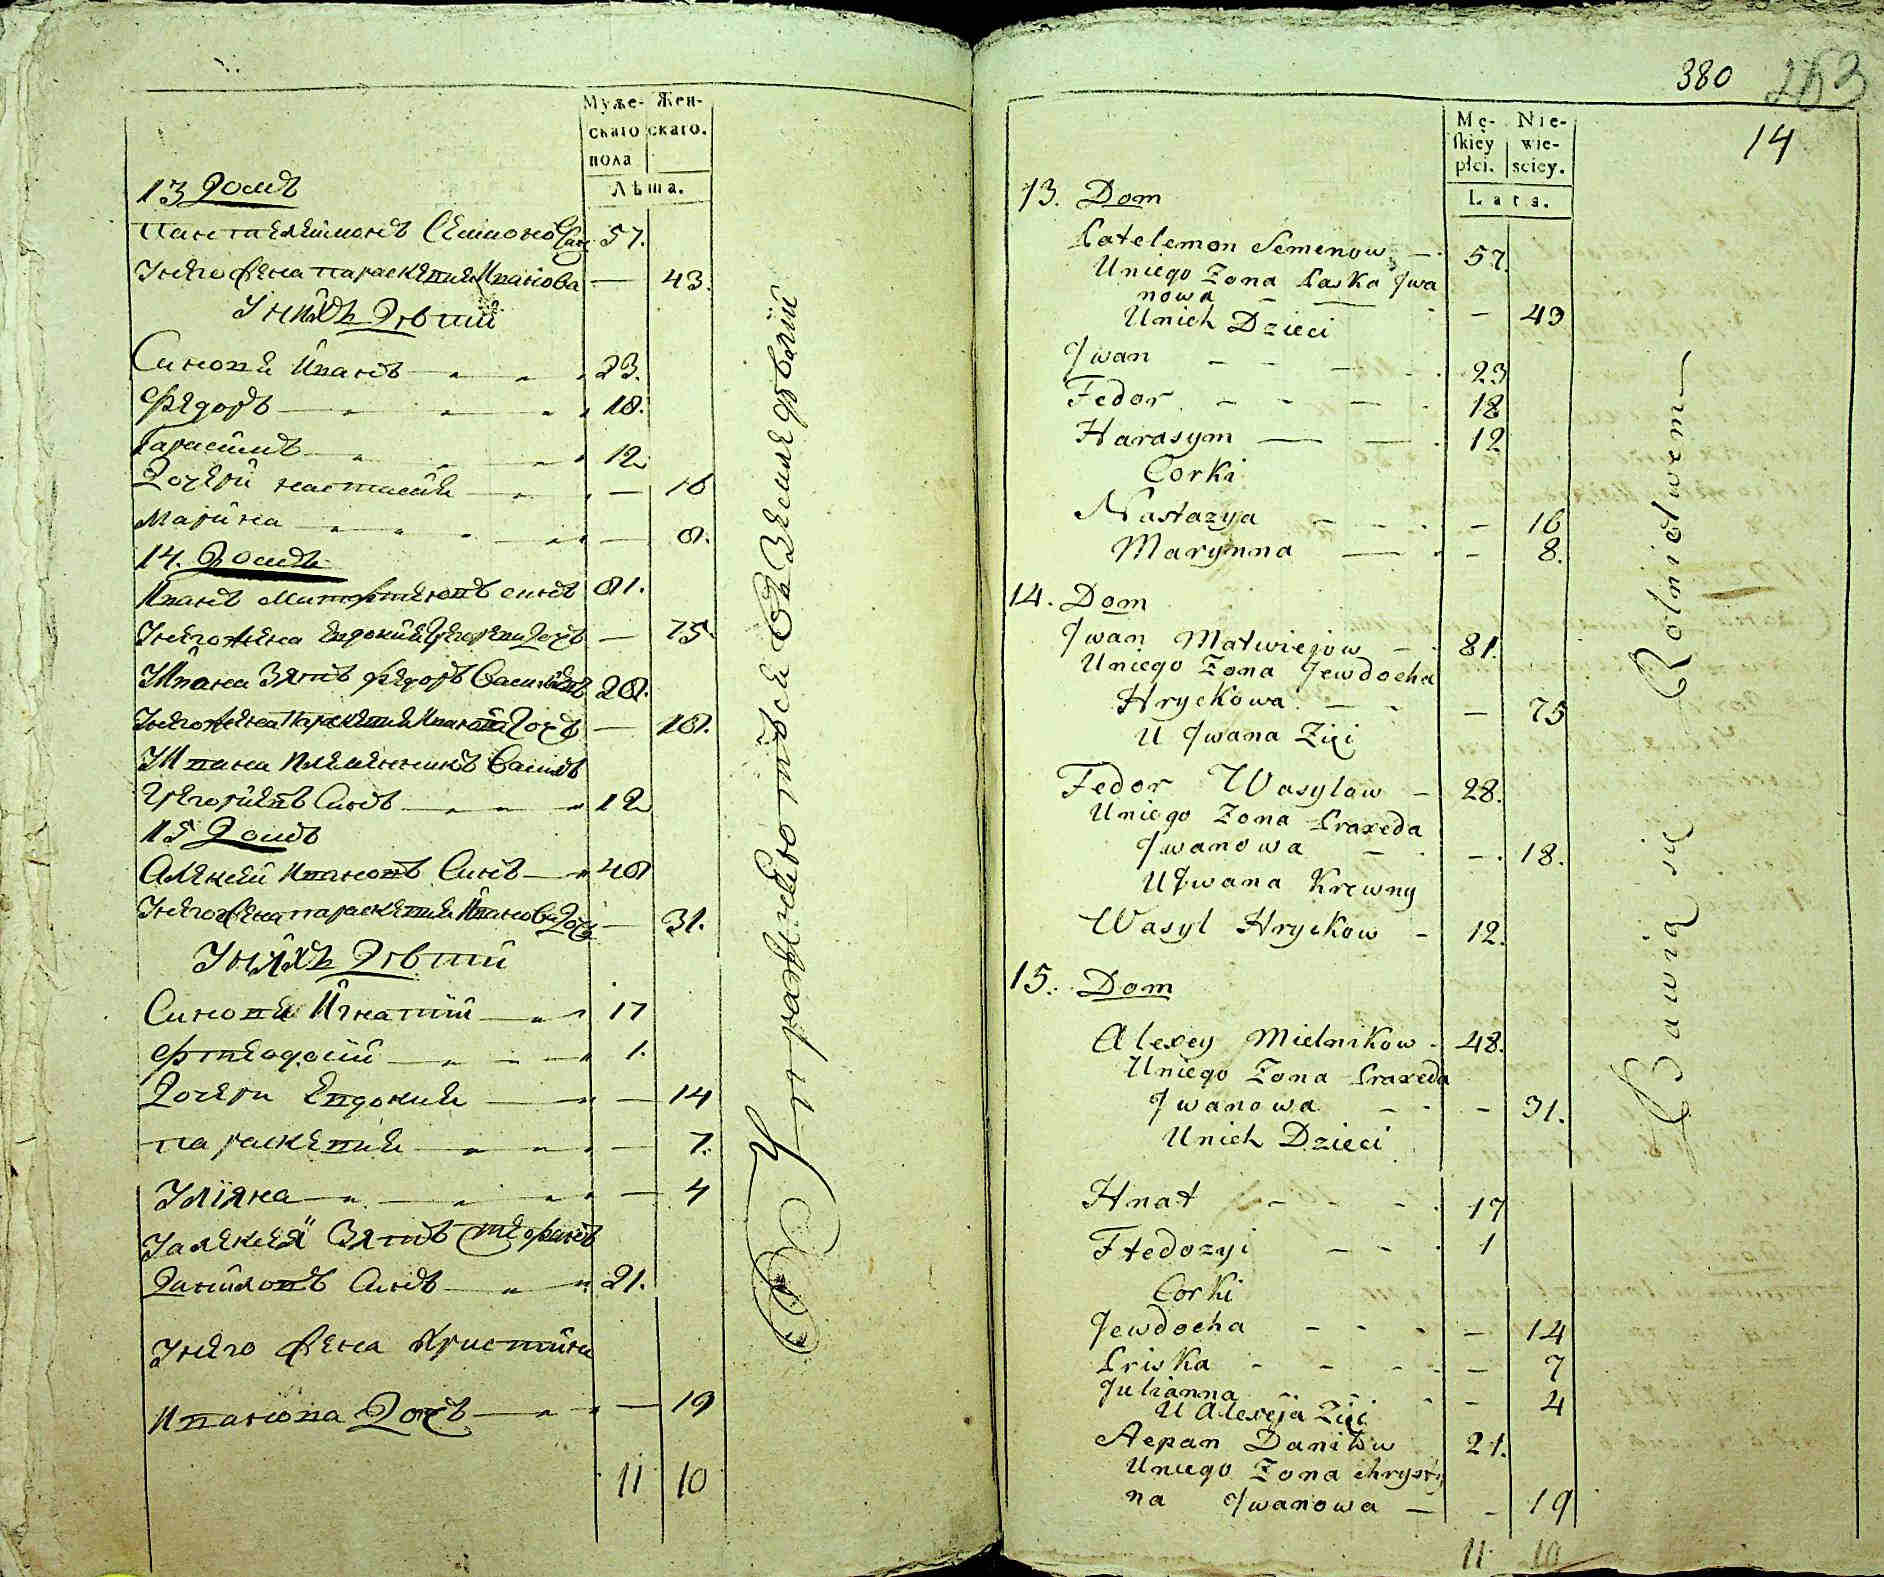 Муже- Жен-
скаго скаго.
пола
Лѣта.
13 Домъ
Пантелеимонъ Семионо Син 57.
У него жена параскевия Иванова — 43.
У нихъ Дѣти
Синови Иванъ 23.
Федоръ 18.
Гарасимъ 12
Дочери настасия — 16
Марина — 8.
14. Домъ
Иванъ Матфиевъ синъ 81.
У него жена Евдокия Григориева Дочь — 75.
У Ивана Зять федоръ Василиевъ 28.
У него жена Параскевия Иванова Дочь — 18.
У Ивана племенникъ Василь
Григориевъ Синъ 12
15 Домъ
Алексей Ивановъ Синъ 48
У него жена параскевия Иванова Дочь — 31.
У нихъ Дѣти
Синови Игнатий 17
Фтеодосий 1.
Дочери Евдокия — 14
параскевия — 7.
Улияна — 4
У алексея Зять Стефанъ
Даниловъ Синъ 21.
У него жена Христина
Иванова Дочь — 19
11 10
Упражняются в Земледѣлий
380
263
14
Mę- Nie-
skiey wie-
płci. sciey.
Lata.
13. Dom
Patelemon Semenow — 57.
U niego Zona Paska Jwa
nowa — 43
U nich Dzieci
Jwan 23
Fedor 18
Harasym 12
Corki
Nastazya — 16
Marynna — 8.
14. Dom
Jwan Matwiejow 81.
U niego Zona Jewdocha
Hryckowa — 75
U Jwana Zięć
Fedor Wasylow — 28.
U niego Zona Praxeda
Jwanowa — 18.
U Jwana Krewny
Wasyl Hryckow — 12.
15. Dom
Alexey Mielnikow 48.
U niego Zona Praxeda
Jwanowa — 31.
U nich Dzieci
Hnat 17
Ftedozyi 1
Corki
Jewdocha — 14
Priska — 7
Julianna — 4
U Alexeja Zięć
Stepan Daniłow 21.
U niego Zona chrysty
na Jwanowa — 19
11 10
Bawią się Rolnictwem